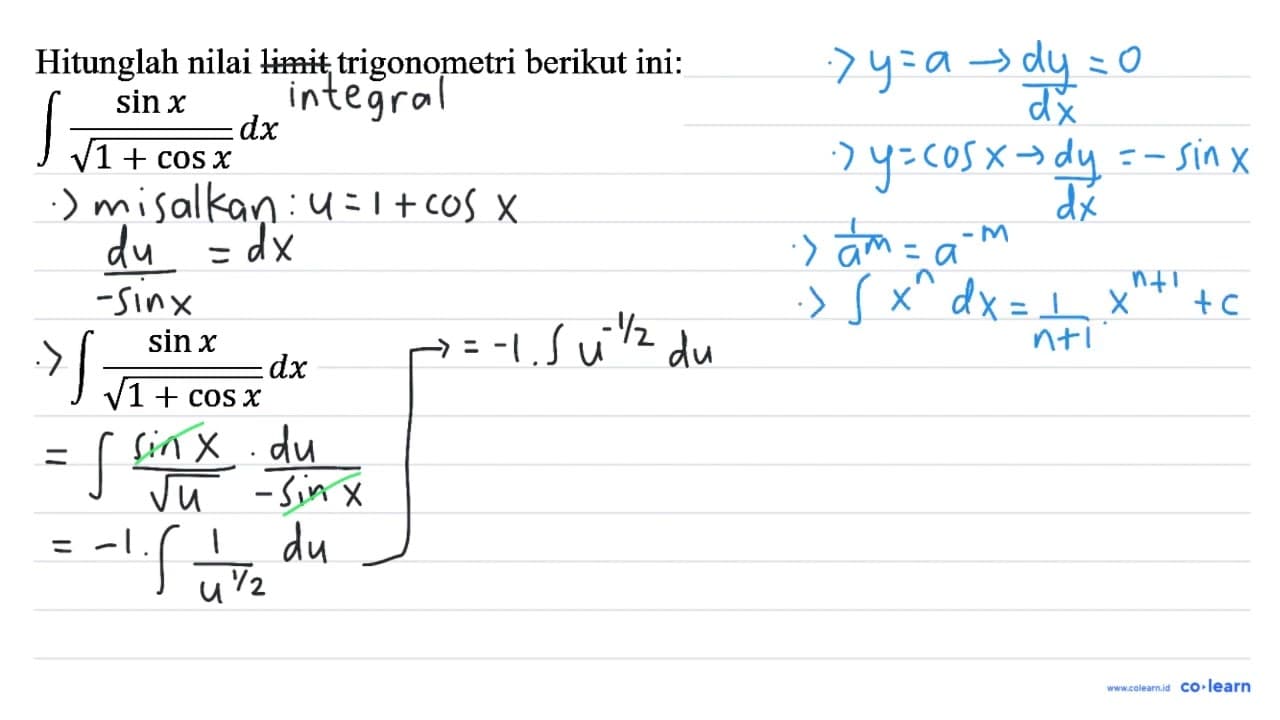 Hitunglah nilai ~~limit~~ trigonometri berikut ini:
integral
∫ sin x / √(1 + cos x) dx
·> misalkan: u = 1 + cos x
du / -sin x = dx
·> ∫ sin x / √(1 + cos x) dx
= ∫ sin x / √u · du / -sin x
= -1 · ∫ 1 / u^(1/2) du
→ = -1 · ∫ u^(-1/2) du
·> y = a → dy/dx = 0
·> y = cos x → dy/dx = - sin x
·> 1 / a^m = a^(-m)
·> ∫ x^n dx = 1 / (n+1) · x^(n+1) + c
www.colearn.id co·learn